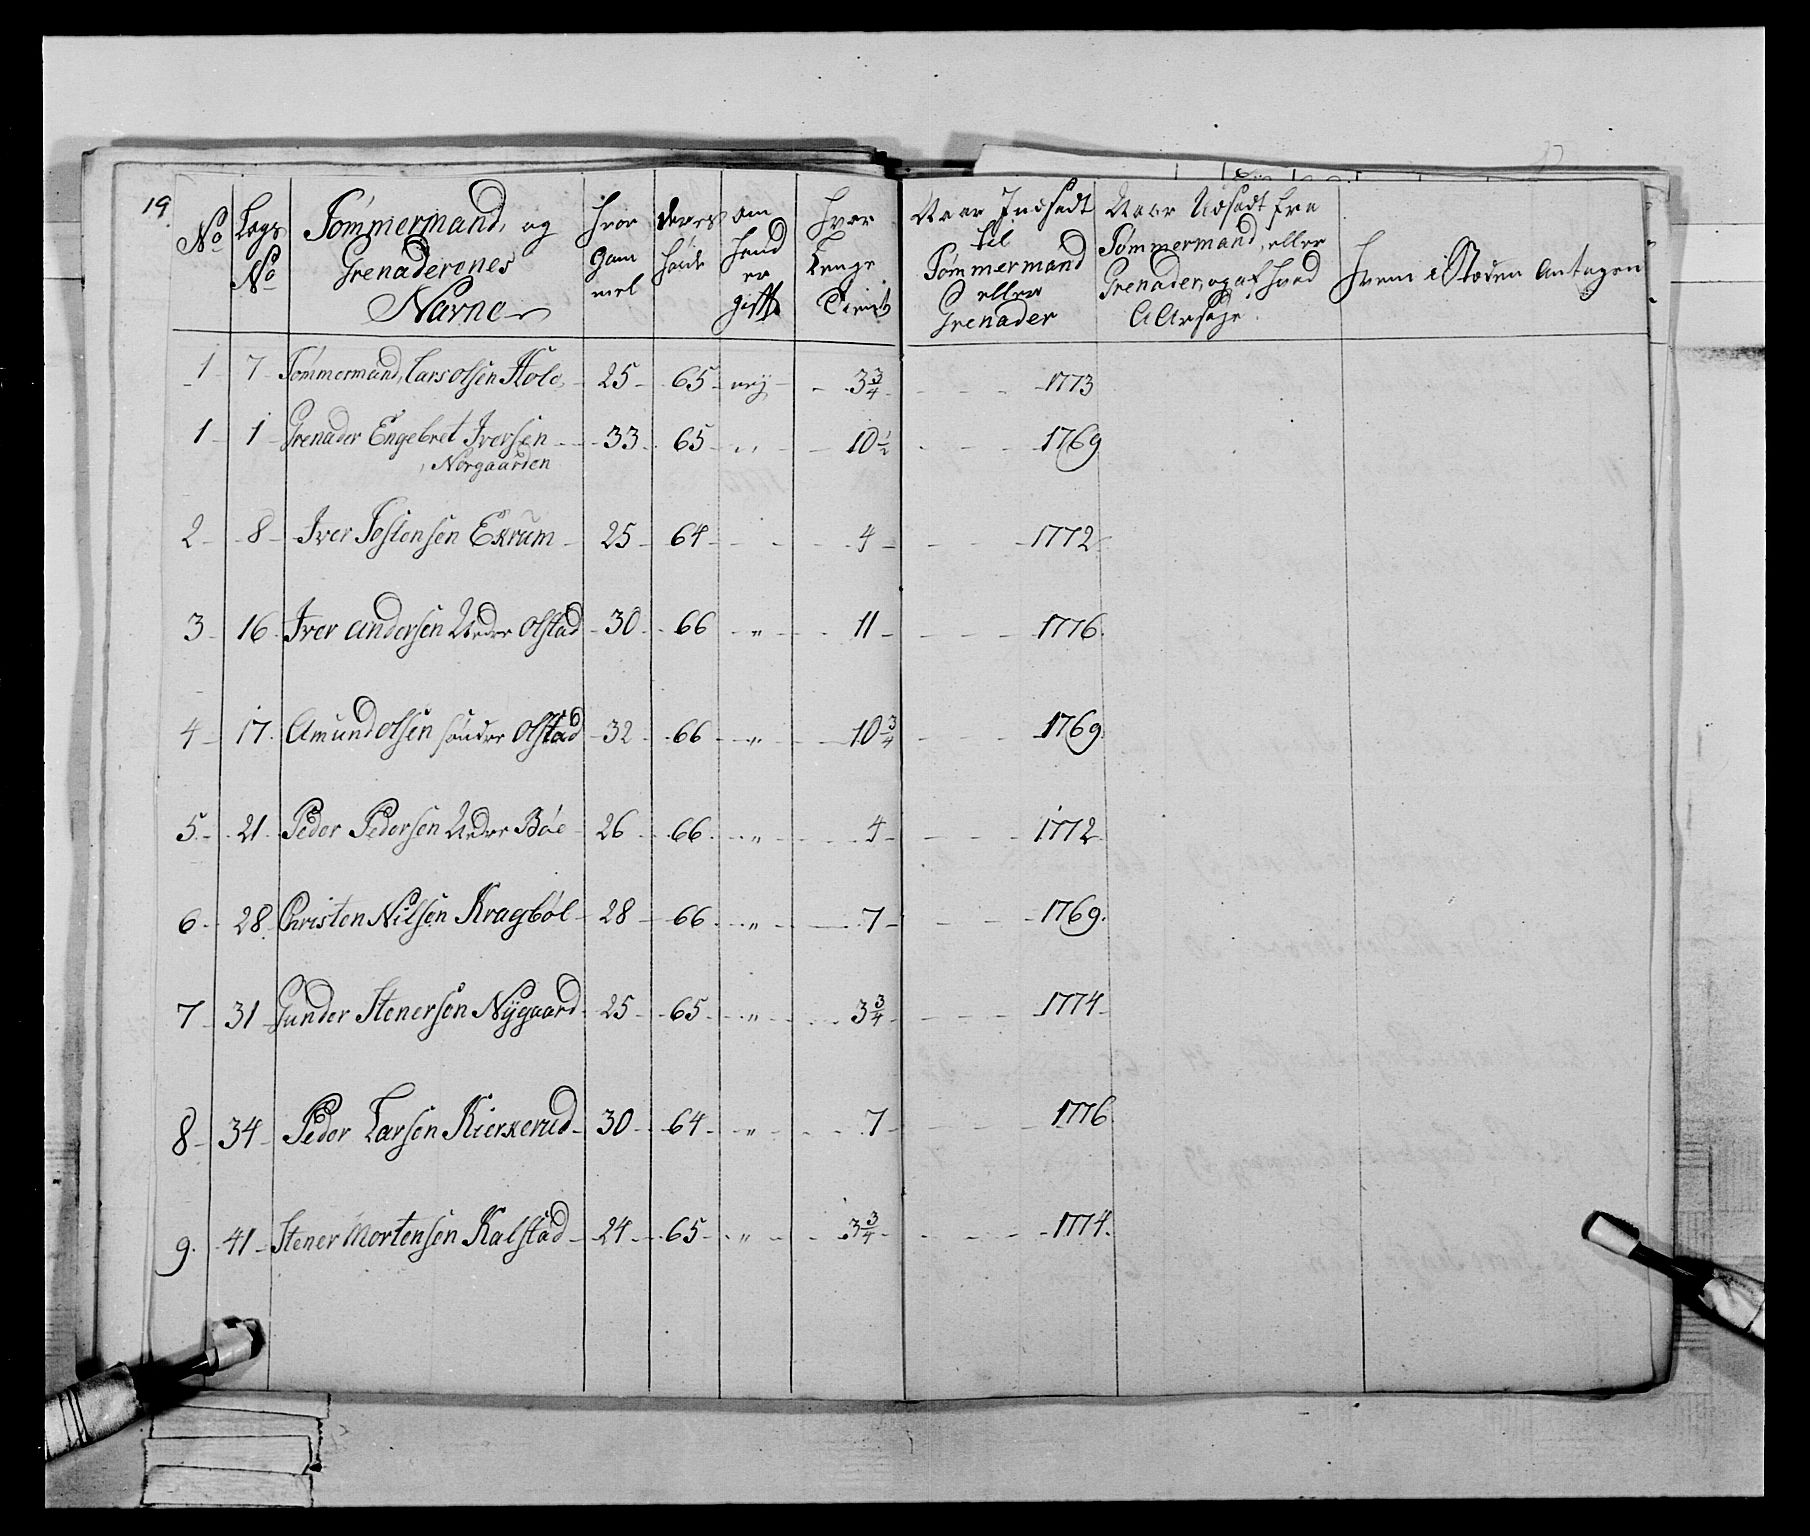 19.
No
Lægs No
Tømmermand, og Grenaderenes Navne
Hvor Gammel
deres Høide
om Hand er gift
Hvor Lenge Tient
Naar Indsadt til Tømmermand eller Grenader
Naar Udsadt fra Tømmermand, eller Grenader, og af hvad Aarsage
Hvem i Stæden Antagen
1 7 Tømmermand, Lars Olsen Hole 25 65 nej 3 3/4 1773
1 1 Grenader Engebret Iversen 33 65 „ 10 1/2 1769
Norgaarden
2 8 Iver Jostensen Ekrum 25 64 4 1772
3 16 Iver Andersen Nedre Olstad 30 66 „ 11 1776
4 17 Amund Olsen Søndre Olstad 32 66 „ 10 3/4 1769
5 21 Peder Pedersen Nedre Bøe 26 66 „ 4 1772
6 28 Christen Nilsen Kragbøl 28 66 „ 7 1769
7 31 Gunder Stenersen Nÿgaard 25 65 „ 3 3/4 1774
8 34 Peder Larsen Kierkerud 30 64 „ 7 1776
9 41 Stener Mortensen Kalstad 24 65 „ 3 3/4 1774